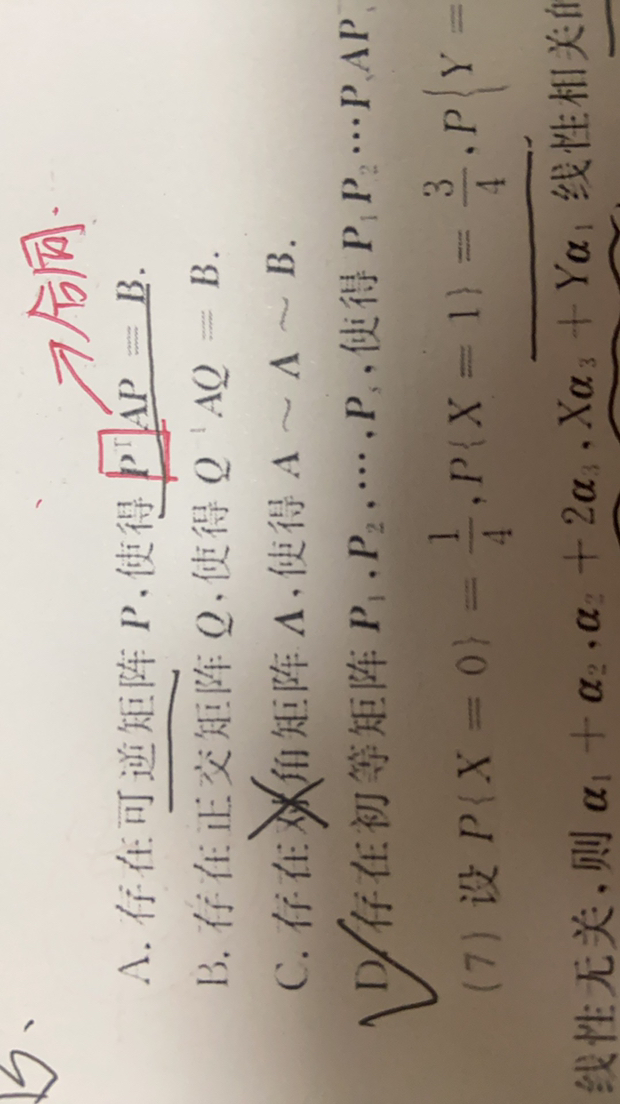 合同.
A. 存在可逆矩阵 P,使得 PᵀAP = B.
B. 存在正交矩阵 Q,使得 Q⁻¹AQ = B.
C. 存在对角矩阵 Λ,使得 A ~ Λ ~ B.
D. 存在初等矩阵 P₁,P₂,…,Pₛ,使得 P₁P₂…PₛAP
(7) 设 P{X = 0} = 1/4, P{X = 1} = 3/4, P{Y =
线性无关,则 α₁ + α₂, α₂ + 2α₃, Xα₃ + Yα₁ 线性相关的